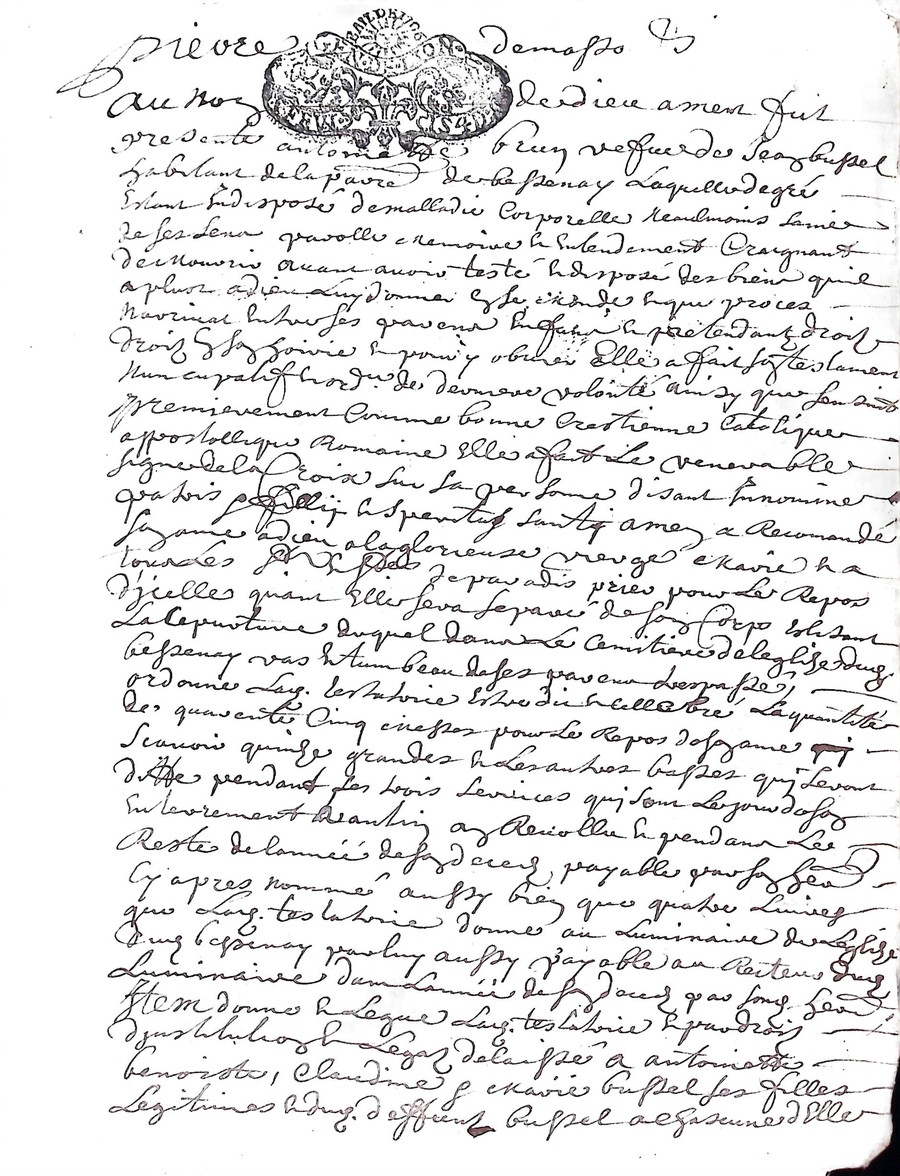 pierre demasso
Au nom de dieu amen fut
presente antoinette brun vefue de Jean bussel
habitant de la parre de bessenay Laquelle de gré
Estant Indisposé de malladie Corporelle Neaulmoins Saine
de ses sens parolle memoire et Entendement Craignant
de mourir auant auoir testé et disposé des biens quil
a pleut a dieu Luy donner et que proces
entre ses parens Enfans et pretendantz droit
droit En son hoirie et pour y obuier Elle a fait son testament
Nuncupatif et ord.ce de derniere volonté ainsy que sensuit
premierement Comme bonne Crestienne Catolique
appostollique Romaine Elle a fait Le venerable
signe de la Croix sur sa personne disant In nomine
patris et fillij et speritus santy amen a Recomandé
son ame a dieu a la glorieuse vierge marie et a
tous Les de paradis prier pour Le Repos
d'jcelle quant Elle sera separeé de son Corps Eslisant
La Sepurture duquel dans Le Cemitiere de leglise dud.
bessenay vas et tumbeau de ses parens trespassés
ordonne Lad. testatrice Estre dit et cellebré La quantité
de quarente Cinq messes pour Le Repos de son ame
Scauoir quinze grandes et Les autres basses quj seront
ditte pendant Les trois seruices quj sont Le jour de son
Enterrement quarantin an Reuollu et pendant Le
Reste de lanneé de son deced payable par son her.
Cy apres nommé aussy bien que quatre Liures
que Lad. testatrice donne au Luminaire de Leglise
dud. bessenay par luy aussy payable au Recteur dud.
Luminaire dans Lanneé de son deced par sond. her.
Item donne et Legue Lad. testatrice et par droit
djnstitution et Legat delaissé a antoinette
benoiste, Claudine et marie bussel ses filles
Legitimes et dud. deffunt bussel a chascune d'Elle